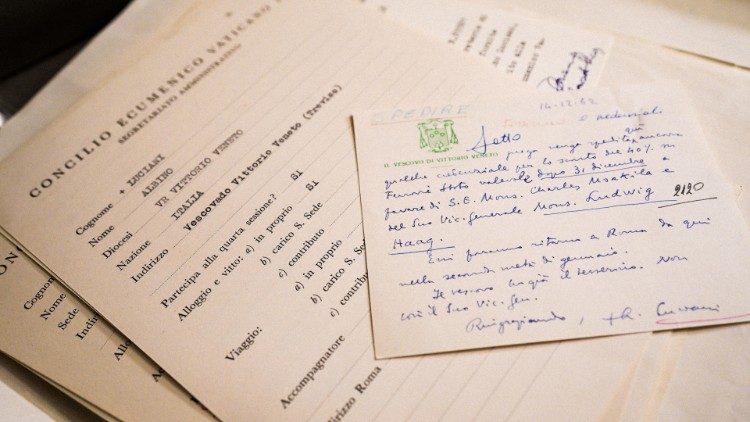 CONCILIO ECUMENICO VATICANO
SEGRETARIATO AMMINISTRATIVO
Cognome + LUCIANI
Nome ALBINO
Diocesi VR VITTORIO VENETO
Nazione ITALIA
Indirizzo Vescovado Vittorio Veneto (Treviso)
Partecipa alla quarta sessione? SI
Alloggio e vitto: a) in proprio SI
b) carico S. Sede
c) contributo
Viaggio: a) in proprio
b) carico S. Sede
c) contributo
Accompagnatore
Indirizzo Roma
Cognome
Nome
Sede
SPEDIRE
14-12-62
IL VESCOVO DI VITTORIO VENETO
qualche credenziale per lo sconto del 40% su
Ferrovie Stato valevole dopo 31 dicembre a
favore di S.E. Mons. Charles Msakila e
del Suo Vic. generale Mons. Ludwig 2120
Haag.
Essi faranno ritorno a Roma da qui
nella seconda metà di gennaio.
Il vescovo ha già il tesserino. Non
così il Suo Vic. Gen.
Ringraziando,